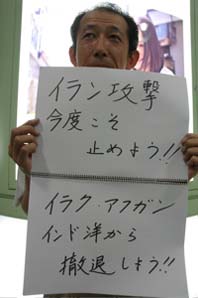 イラン攻撃
今度こそ
止めよう!!
イラク アフガン
インド洋から
撤退しよう!!